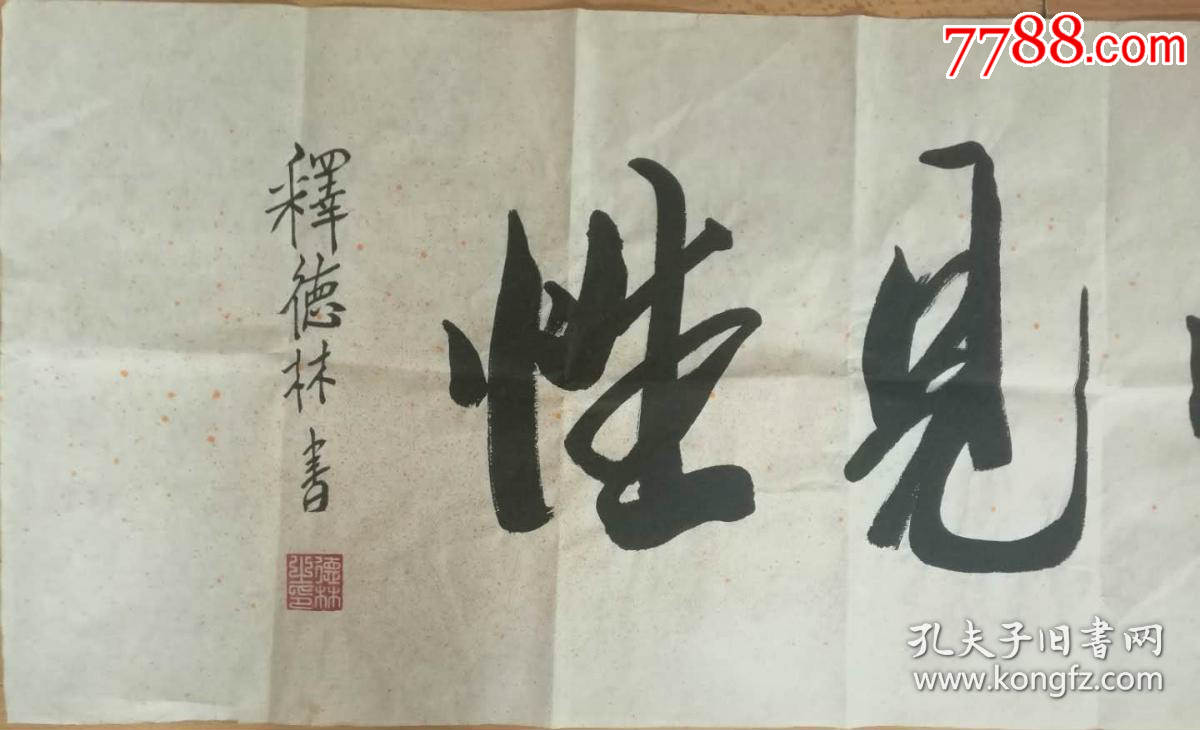 7788.com
見性
釋德林書
德林
孔夫子旧书网
www.kongfz.com